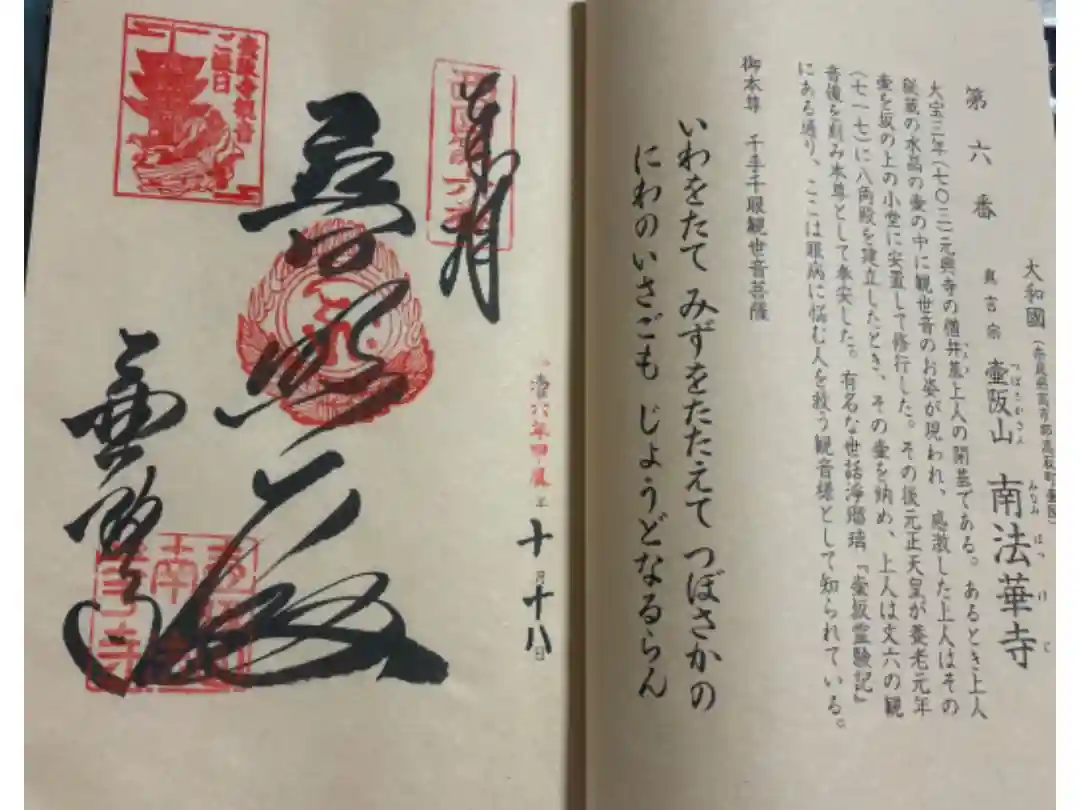 大和國(奈良県高市郡高取町壷阪)
第六番 真言宗 壷阪山 南法華寺
つぼさかさん みなみほっけじ
大宝三年(七〇三)元興寺の
上人の開基である。あるとき上人
秘蔵の水晶の壷の中に観世音のお姿が現われ、感激した上人はその
壷を坂の上の小堂に安置して修行した。その後元正天皇が養老元年
(七一七)に八角殿を建立したとき、その壷を納め、上人は丈六の観
音像を刻み本尊として奉安した。有名な世話浄瑠璃『壷坂霊験記』
にある通り、ここは眼病に悩む人を救う観音様として知られている。
御本尊 千手千眼観世音菩薩
いわをたて みずをたたえて つぼさかの
にわのいさごも じょうどなるらん
奉拝
西国第六番
普照殿
壷阪寺
十月十八日
壷阪寺観音
ご縁日